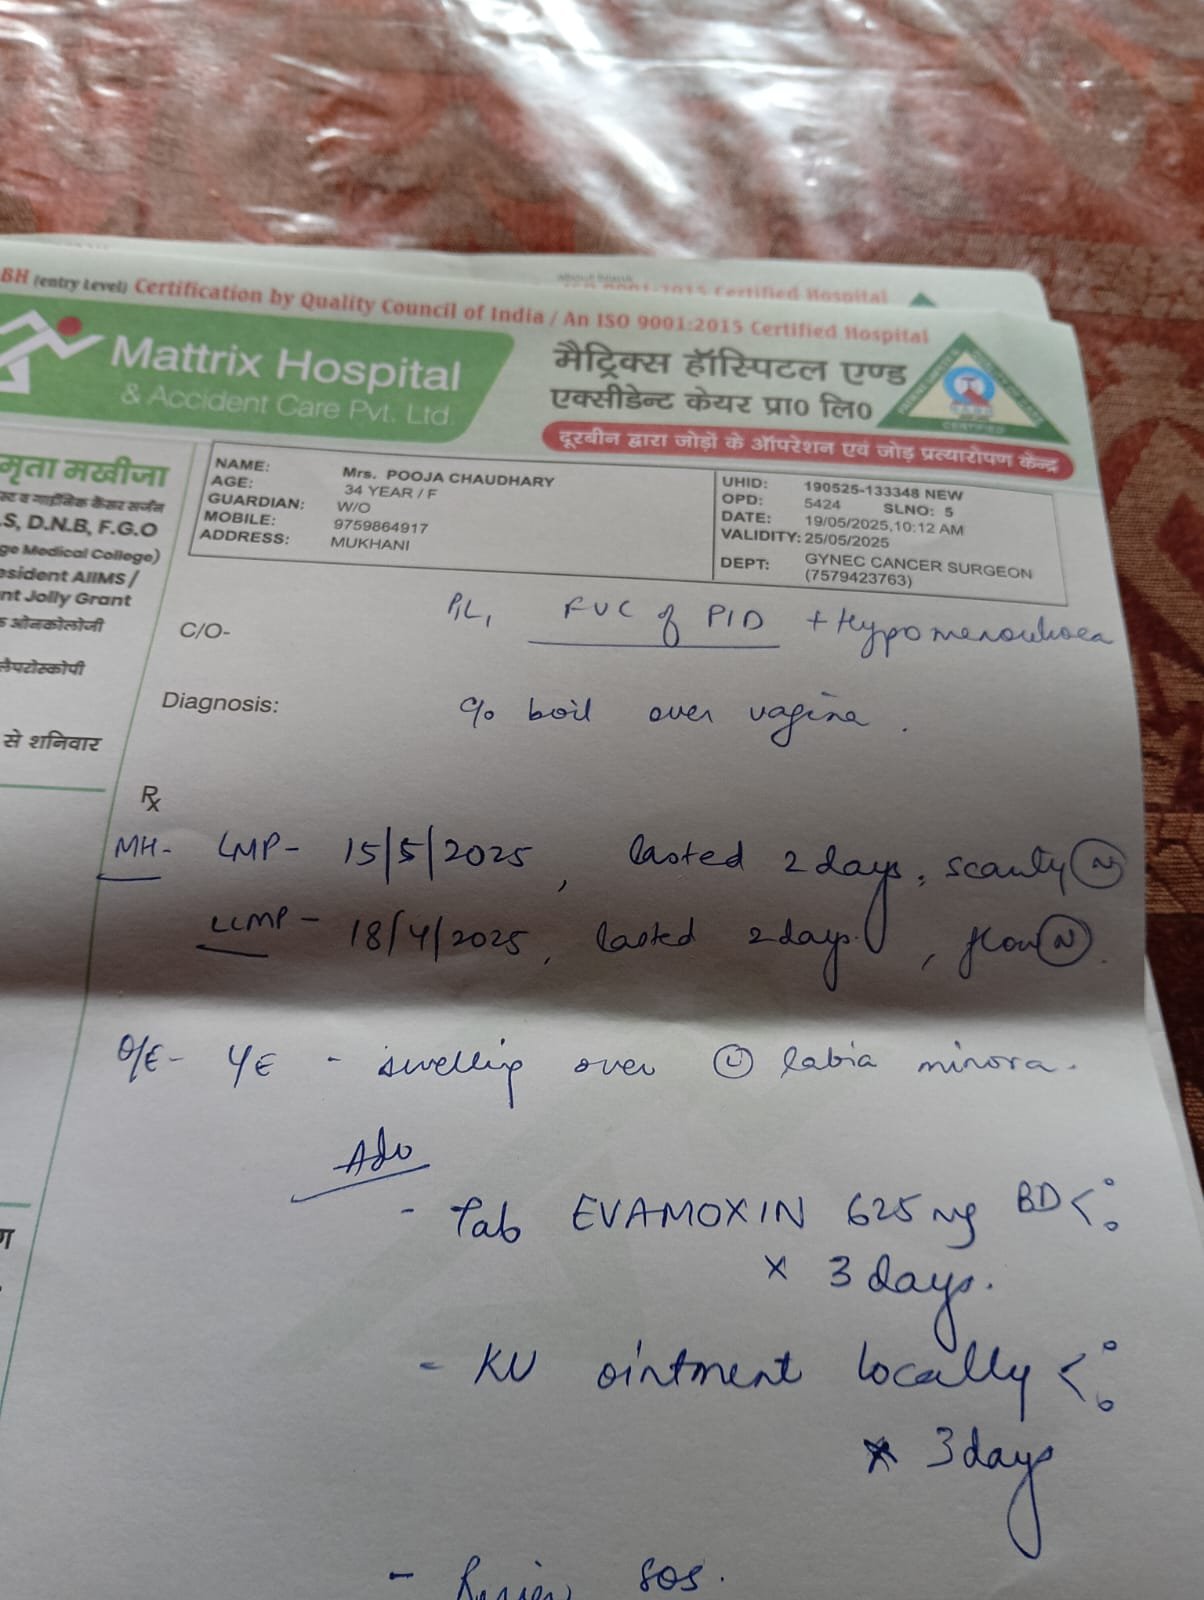 BH (entry Level) Certification by Quality Council of India / An ISO 9001:2015 Certified Hospital
Mattrix Hospital
& Accident Care Pvt. Ltd.
मैट्रिक्स हॉस्पिटल एण्ड
एक्सीडेन्ट केयर प्रा० लि०
CERTIFIED
दूरबीन द्वारा जोड़ों के ऑपरेशन एवं जोड़ प्रत्यारोपण केन्द्र
मृता मखीजा
व गाईनिक कैंसर सर्जन
.S, D.N.B, F.G.O
ge Medical College)
esident AIIMS /
nt Jolly Grant
ऑनकोलोजी
लैपरोस्कोपी
से शनिवार
NAME: Mrs. POOJA CHAUDHARY
AGE: 34 YEAR / F
GUARDIAN: W/O
MOBILE: 9759864917
ADDRESS: MUKHANI
UHID: 190525-133348 NEW
OPD: 5424 SLNO: 5
DATE: 19/05/2025,10:12 AM
VALIDITY: 25/05/2025
DEPT: GYNEC CANCER SURGEON
(7579423763)
C/O- P1L1 FUC of PID + Hypomenorrhoea
Diagnosis: c/o boil over vagina.
Rx
MH- LMP- 15/5/2025, lasted 2 days, scanty (N)
LLMP- 18/4/2025, lasted 2 days, flow (N).
O/E- L/E - swelling over (L) labia minora.
Adv
- Tab EVAMOXIN 625 mg BD
x 3 days.
- KV ointment locally
x 3 days
- Review SOS.